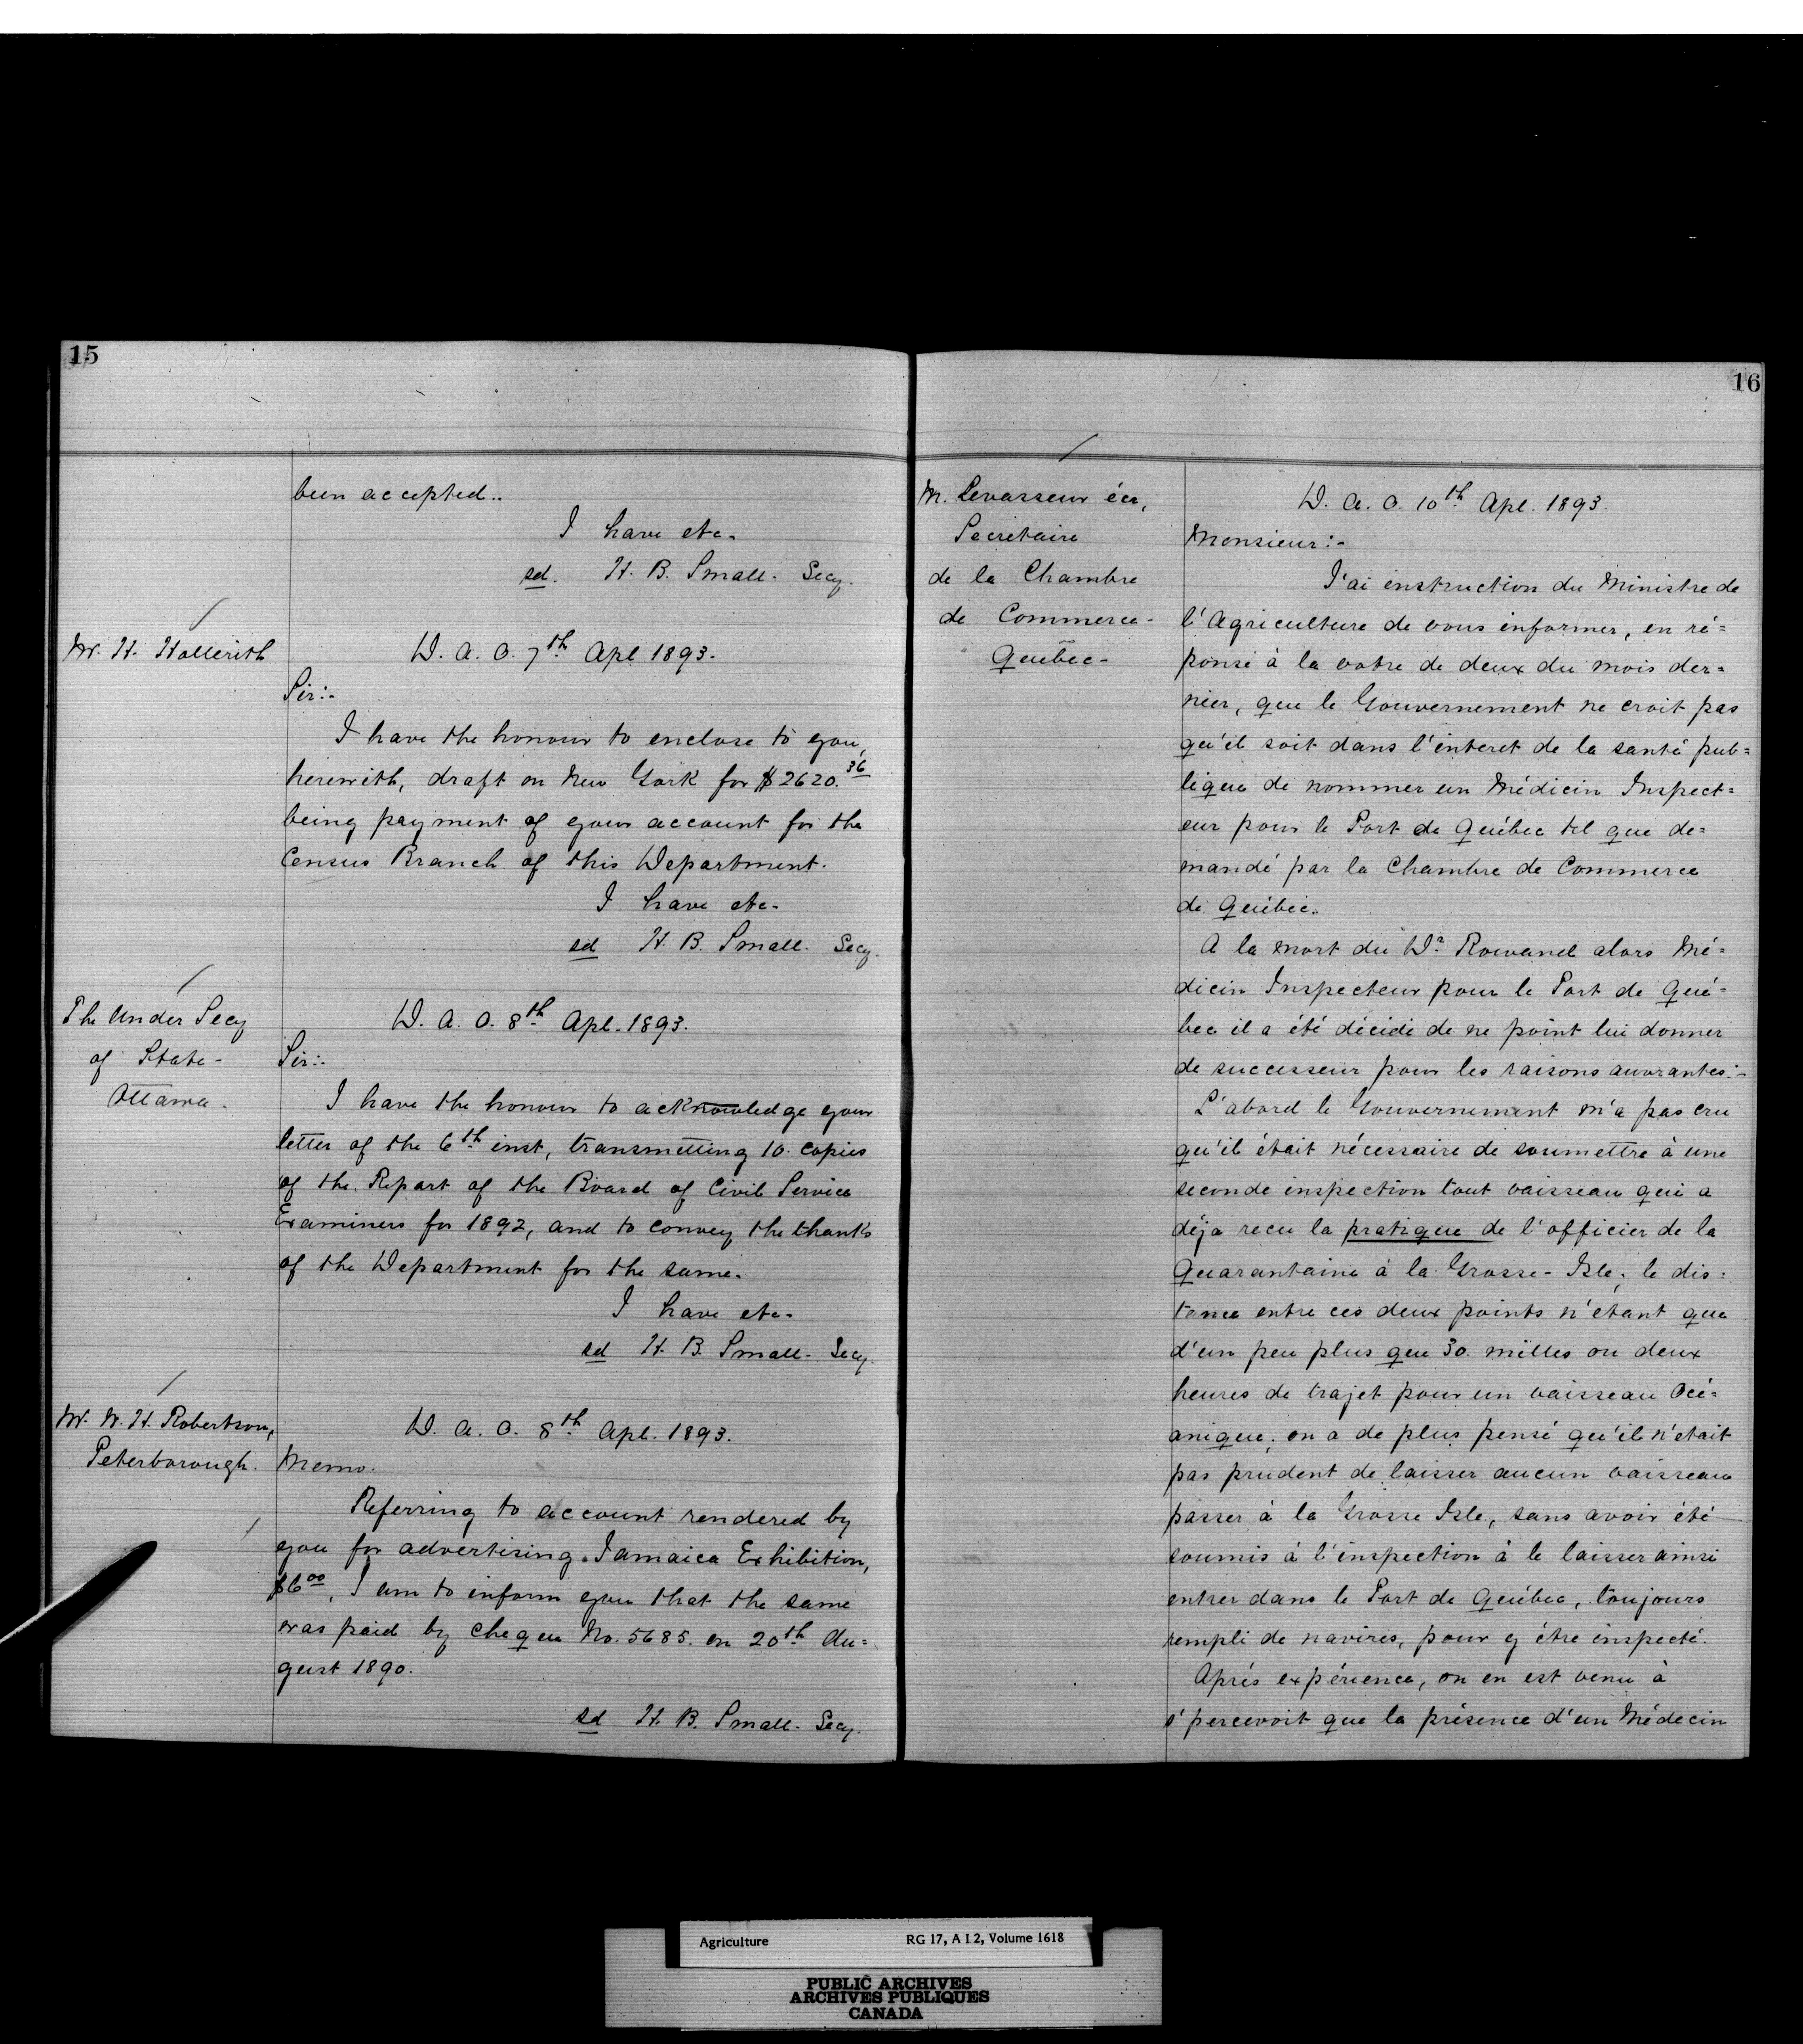 15
been accepted..
I have etc.
sd. H. B. Small. Secy.
Mr. H. Hollerith
D. A. O. 7th Apl 1893.
Sir:-
I have the honour to enclose to you,
herewith, draft on New York for $2620.36
being payment of your account for the
Census Branch of this Department.
I have etc.
sd H. B. Small. Secy.
The Under Secy
of State-
Ottawa.
D. A. O. 8th Apl. 1893.
Sir:-
I have the honour to acknowledge your
letter of the 6th inst, transmitting 10. copies
of the Report of the Board of Civil Service
Examiners for 1892, and to convey the thanks
of the Department for the same.
I have etc.
sd H. B. Small. Secy.
Mr. W. H. Robertson,
Peterborough.
D. A. O. 8th Apl. 1893.
Memo.
Referring to account rendered by
you for advertising Jamaica Exhibition,
$6.00, I am to inform you that the same
was paid by cheque No. 5685. on 20th Au=
gust 1890.
sd H. B. Small. Secy.
16
M. Levasseur écr,
Secretaire
de la Chambre
de Commerce-
Québec-
D. A. O. 10th Apl. 1893.
Monsieur:-
J'ai instruction du Ministre de
l'Agriculture de vous informer, en ré=
ponse à la votre de deux du mois der=
nier, que le Gouvernement ne croit pas
qu'il soit dans l'interet de la santé pub=
lique de nommer un Médicin Inspect=
eur pour le Port de Québec tel que de=
mandé par la Chambre de Commerce
de Québec.
A la mort du Dr. Rowand alors Mé=
dicin Inspecteur pour le Port de Qué=
bec il a été décidé de ne point lui donner
de successeur pour les raisons:-
D'abord le Gouvernement n'a pas cru
qu'il était nécessaire de soumettre à une
seconde inspection tout vaisseau qui a
déja recu la pratique de l'officier de la
Quarantaine à la Grosse-Isle; le dis=
tance entre ces deux points n'etant que
d'un peu plus que 30. milles ou deux
heures de trajet pour un vaisseau Océ=
anique; on a de plus pensé qu'il n'etait
pas prudent de laisser aucun vaisseau
passer à la Grosse Isle, sans avoir été
soumis à l'inspection à le laisser ainsi
entrer dans le Port de Québec, toujours
rempli de navires, pour y être inspecté.
Aprés expérience, on en est venu à
s'percevoit que la présence d'un Médecin
Agriculture RG 17, A I.2, Volume 1618
PUBLIC ARCHIVES
ARCHIVES PUBLIQUES
CANADA